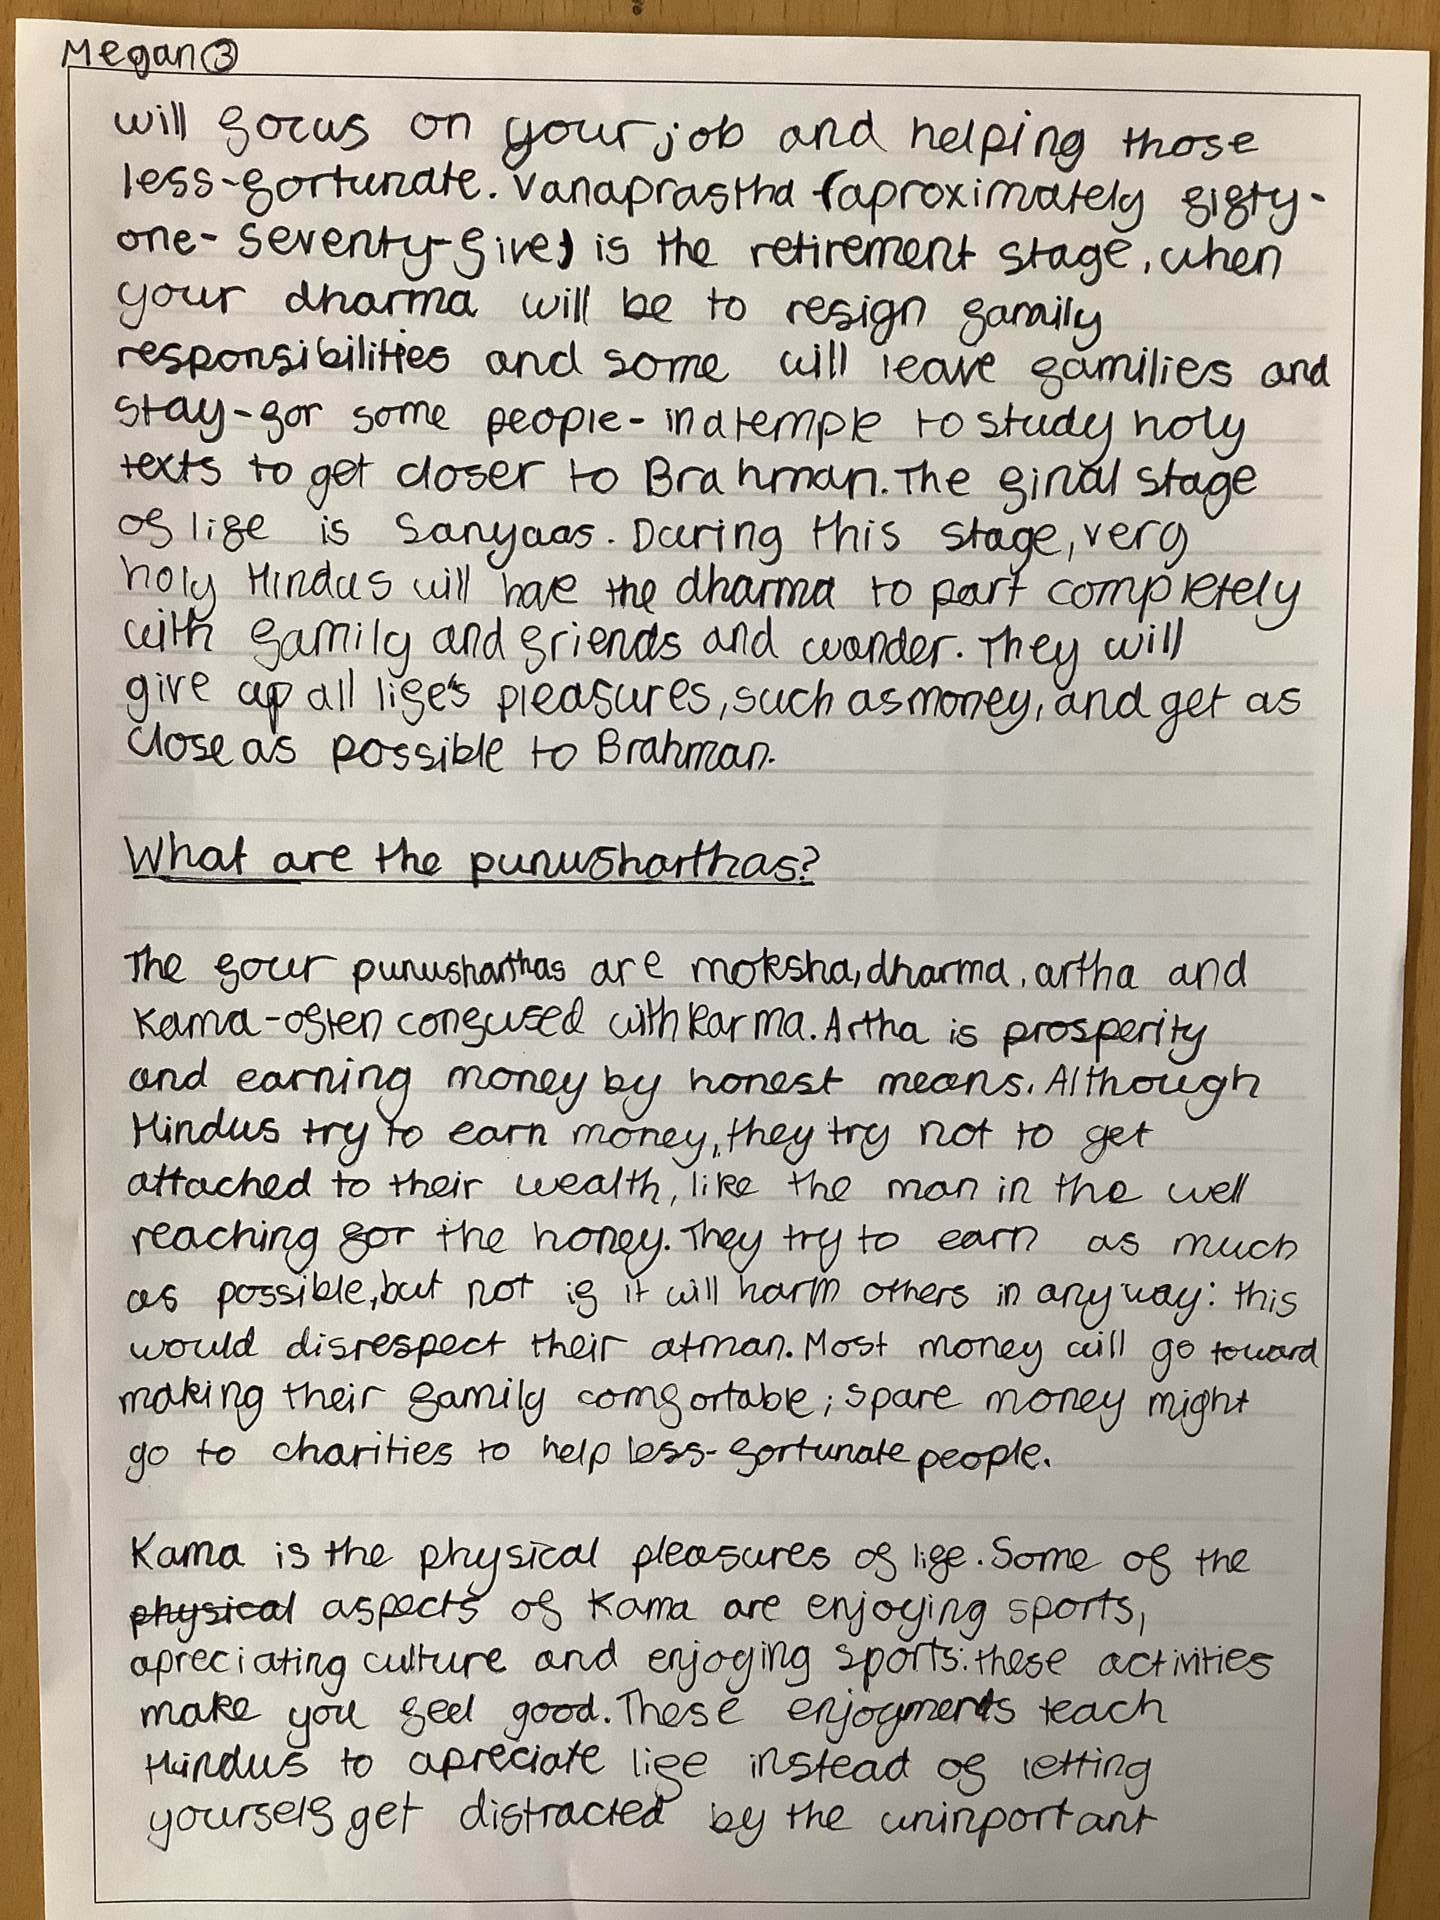 Megan ③
will focus on your job and helping those
less-fortunate. Vanaprastha (aproximately fifty-
one-seventy-five) is the retirement stage, when
your dharma will be to resign family
responsibilities and some will leave families and
stay-for some people-in a temple to study holy
texts to get closer to Brahman. The final stage
of life is Sanyaas. During this stage, very
holy Hindus will have the dharma to part completely
with family and friends and wander. They will
give up all life's pleasures, such as money, and get as
close as possible to Brahman.
What are the punusharthas?
The four punusharthas are moksha, dharma, artha and
Kama-often confused with karma. Artha is prosperity
and earning money by honest means. Although
Hindus try to earn money, they try not to get
attached to their wealth, like the man in the well
reaching for the honey. They try to earn as much
as possible, but not if it will harm others in any way: this
would disrespect their atman. Most money will go toward
making their family comfortable; spare money might
go to charities to help less-fortunate people.
Kama is the physical pleasures of life. Some of the
physical aspects of Kama are enjoying sports,
apreciating culture and enjoying sports: these activities
make you feel good. These enjoyments teach
Hindus to apreciate life instead of letting
yourself get distracted by the uninportant